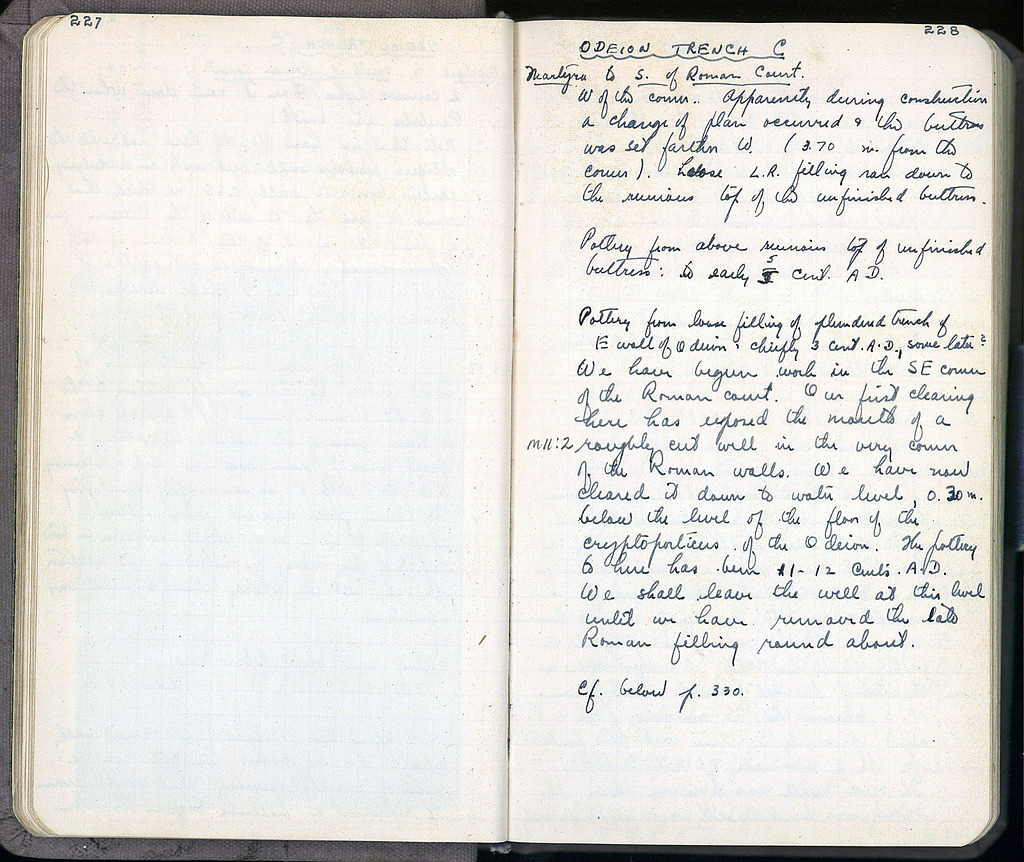 227
228
ODEION TRENCH C
Martyra to S. of Roman Court.
W of the corner. Apparently during construction
a change of plan occurred & the buttress
was set farther W. (3.70 m. from the
corner). Loose L.R. filling ran down to
the ruinous top of the unfinished buttress.
Pottery from above ruinous top of unfinished
buttress: to early 5 cent. A.D.
Pottery from loose filling of plundered trench of
E wall of Odeion: chiefly 3 cent. A.D., some later?
We have begun work in the SE corner
of the Roman court. Our first clearing
here has exposed the mouth of a
N11:2 roughly cut well in the very corner
of the Roman walls. We have now
cleared it down to water level, 0.30 m.
below the level of the floor of the
cryptoporticus of the Odeion. The pottery
to here has been 11-12 Cents. A.D.
We shall leave the well at this level
until we have removed the late
Roman filling round about.
Cf. below p. 330.